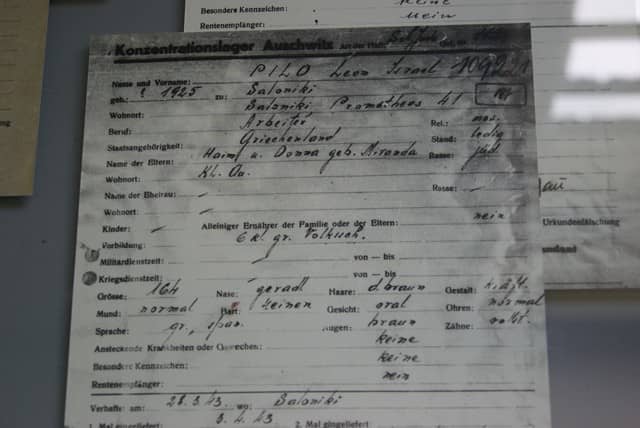 Besondere Kennzeichen: Keine
Rentenempfänger: Nein
Konzentrationslager Auschwitz Art der Haft:
Name und Vorname: PILO Leon Israel
geb.: ? 1925 zu: Saloniki
Wohnort: Saloniki Prometheos 41
Beruf: Arbeiter Rel.: mos.
Staatsangehörigkeit: Griechenland Stand: ledig
Name der Eltern: Haim u. Donna geb. Miranda Rasse: jüd.
Wohnort: Kl. Oa.
Name der Ehefrau: Rasse:
Wohnort:
Kinder: Alleiniger Ernährer der Familie oder der Eltern: nein
Vorbildung: 6 kl. gr. Volkssch.
Militärdienstzeit: von — bis
Kriegsdienstzeit: von — bis
Grösse: 164 Nase: geradl Haare: d.braun Gestalt: kräft.
Mund: normal Bart: keinen Gesicht: oval Ohren: normal
Sprache: gr., span. Augen: braun Zähne: vollst.
Ansteckende Krankheiten oder Gebrechen: keine
Besondere Kennzeichen: keine
Rentenempfänger: nein
Verhafte am: 28.3.43. wo: Saloniki
1. Mal eingeliefert: 3.4.43 2. Mal eingeliefert
Urkundenfälschung